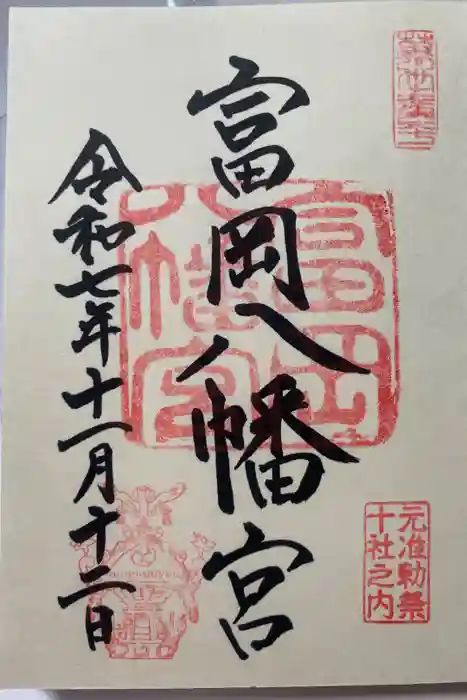 富岡八幡宮
令和七年十一月十二日
富岡
八幡宮
元准勅祭
十社之内